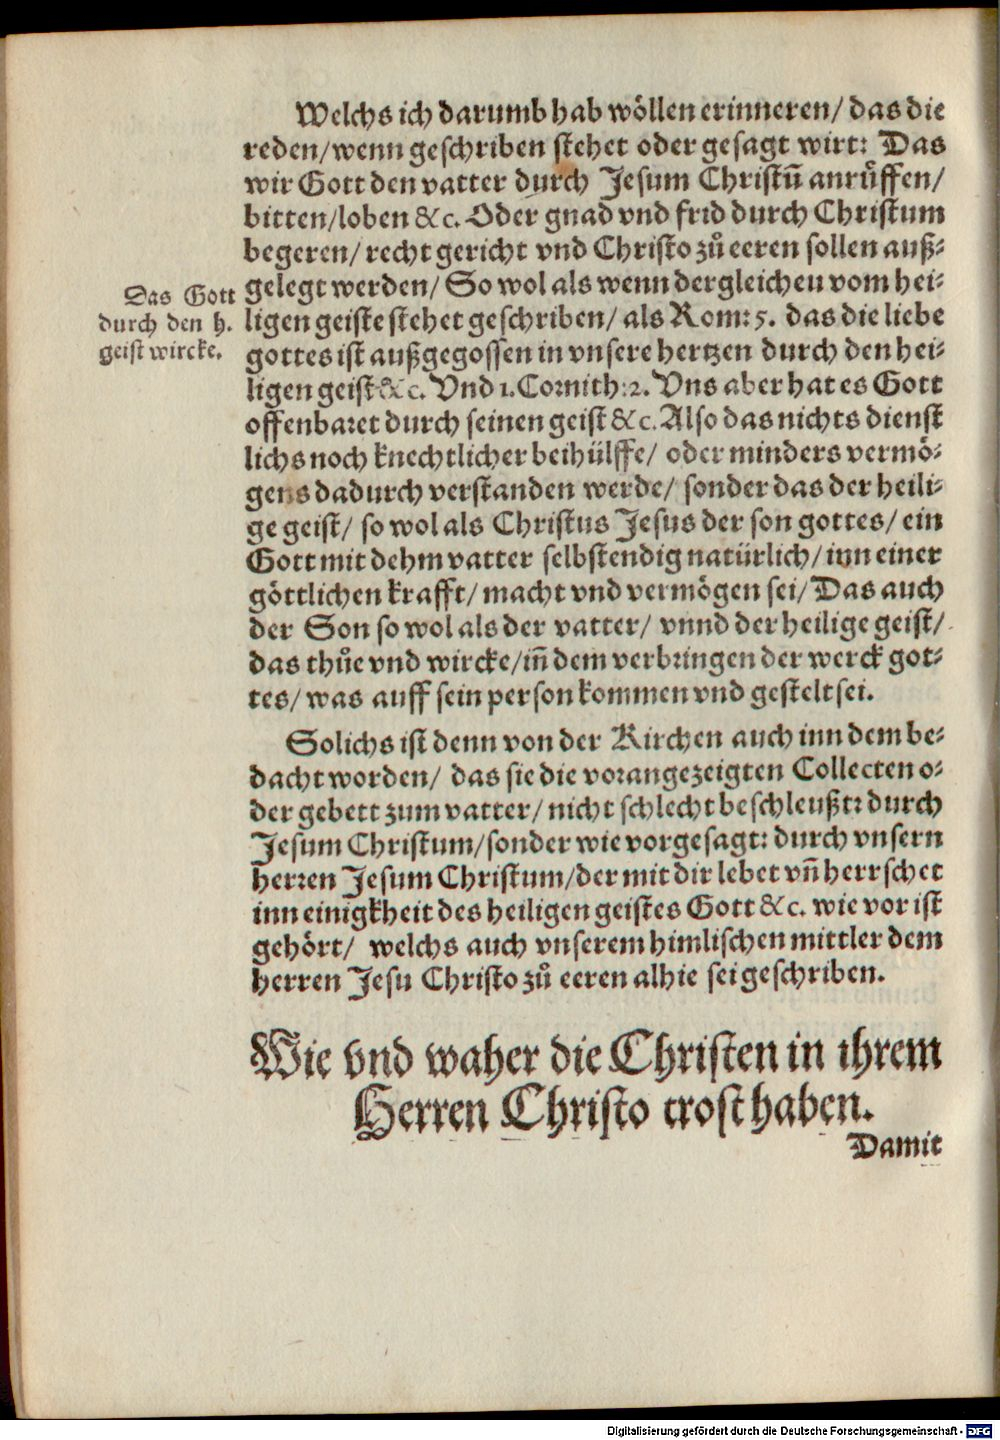 Welchs ich darumb hab wöllen erinneren/ das die
reden/ wenn geschriben stehet oder gesagt wirt: Das
wir Gott den vatter durch Jesum Christū anrůffen/
bitten/ loben &c. Oder gnad vnd frid durch Christum
begeren/ recht gericht vnd Christo zů eeren sollen auß-
gelegt werden/ So wol als wenn dergleicheu vom hei-
ligen geiste stehet geschriben/ als Rom: 5. das die liebe
gottes ist außgegossen in vnsere hertzen durch den hei-
ligen geist &c. Vnd 1. Cornith: 2. Vns aber hat es Gott
offenbaret durch seinen geist &c. Also das nichts dienst
lichs noch knechtlicher beihülffe/ oder minders vermö-
gens dadurch verstanden werde/ sonder das der heili-
ge geist/ so wol als Christus Jesus der son gottes/ ein
Gott mit dehm vatter selbstendig natürlich/ inn einer
göttlichen krafft/ macht vnd vermögen sei/ Das auch
der Son so wol als der vatter/ vnnd der heilige geist/
das thůe vnd wircke/ iñ dem verbringen der werck got-
tes/ was auff sein person kommen vnd gestelt sei.
Das Gott
durch den h.
geist wircke.
Solichs ist denn von der Kirchen auch inn dem be-
dacht worden/ das sie die vorangezeigten Collecten o-
der gebett zum vatter/ nicht schlecht beschleußt: durch
Jesum Christum/ sonder wie vorgesagt: durch vnsern
herren Jesum Christum/ der mit dir lebet vñ herrschet
inn einigkheit des heiligen geistes Gott &c. wie vor ist
gehört/ welchs auch vnserem himlischen mittler dem
herren Jesu Christo zů eeren alhie sei geschriben.
Wie vnd waher die Christen in ihrem
Herren Christo trost haben.
Damit
Digitalisierung gefördert durch die Deutsche Forschungsgemeinschaft - DFG